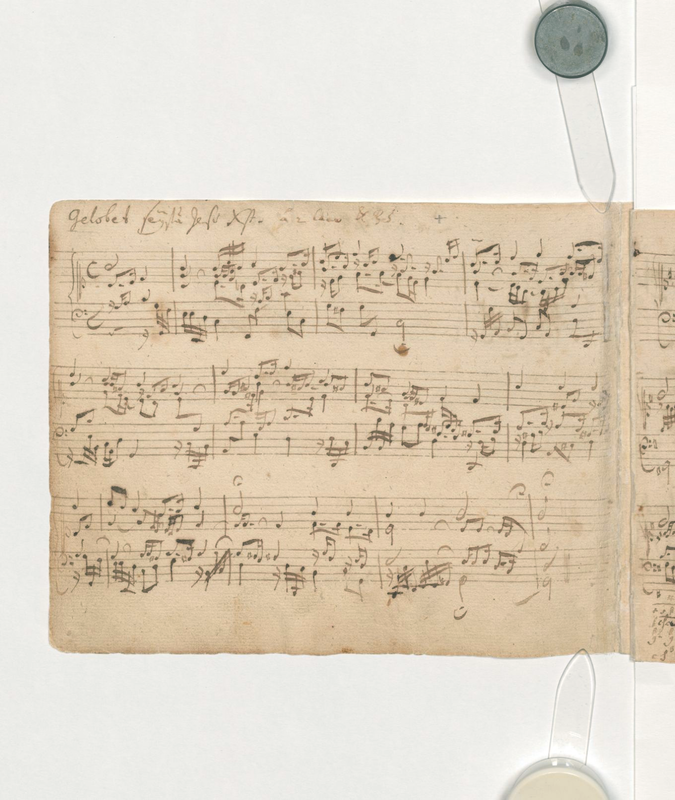 Gelobet seÿstu Jesu Xst. à 2 Clav & Ped.